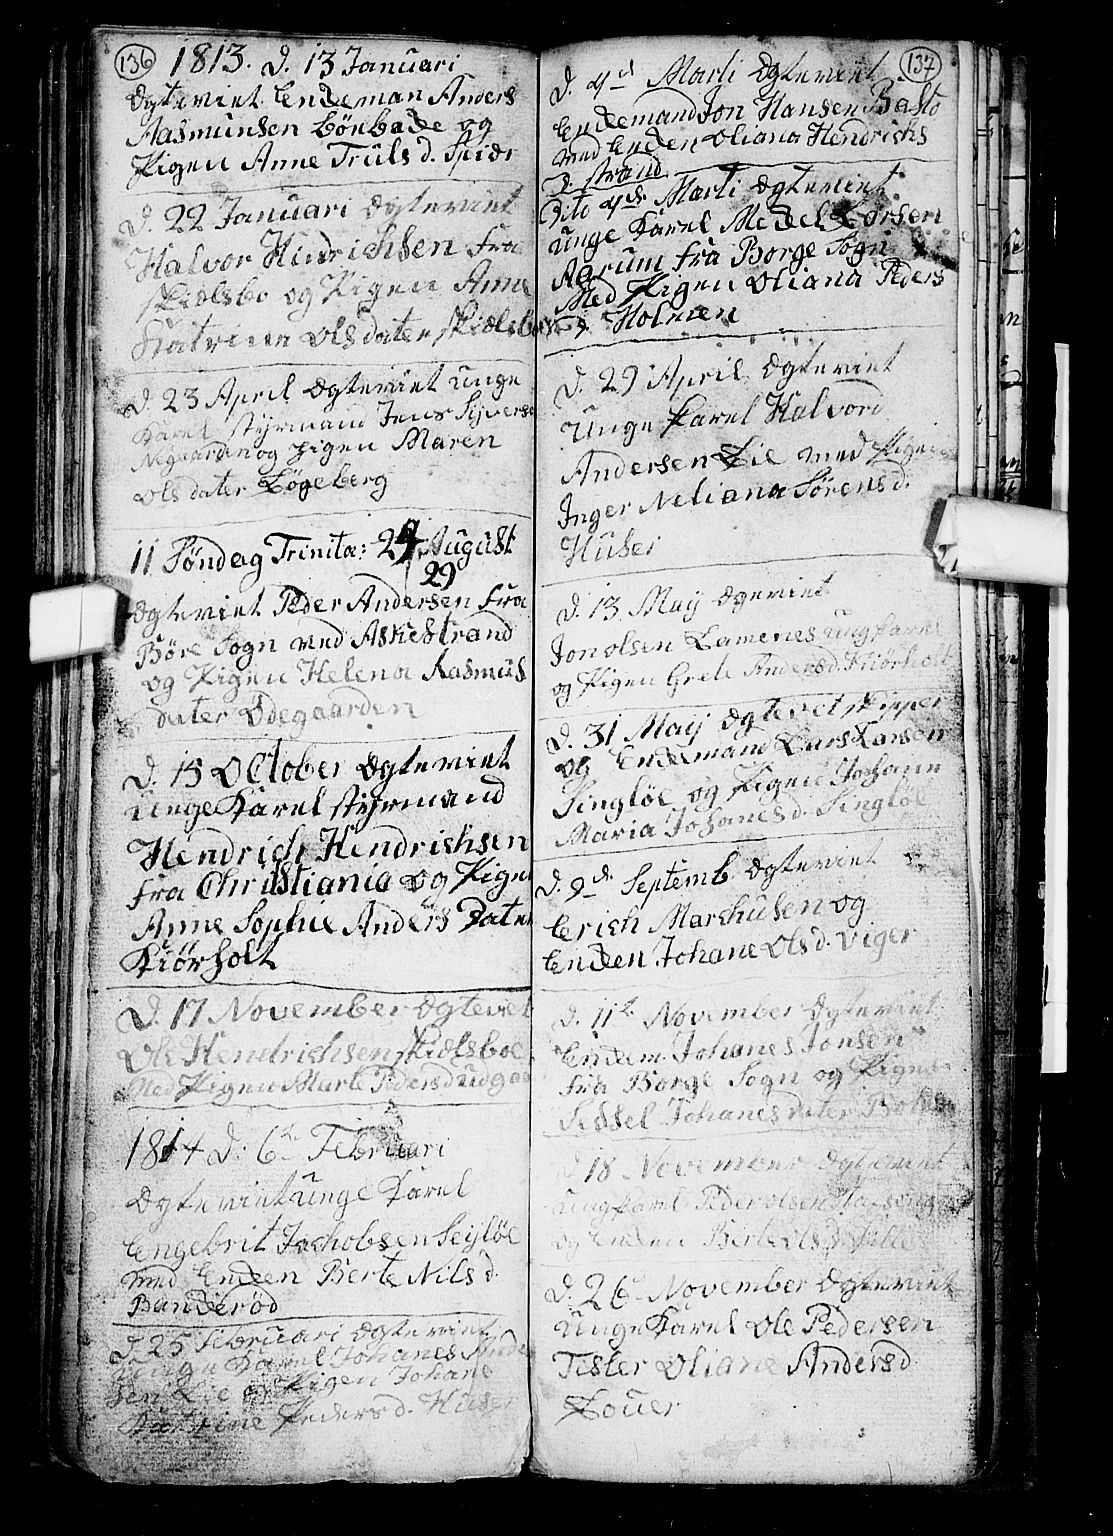 136
1813. d. 13 Januari
Ægteviet Enckeman Anders
Aasmunsen bönbacke og
Pigen Anne Truls d. Spier
d. 22 Januari Ægteviet
Halvor Hindrichsen fra
Skiolsbo og Pigen Anne
Katrina Olsdater Skiolsboe
d. 23 April Ægteviet unge
Karel Styrmand Jens Syvers
Negaarden og pigen Maren
Olsdater Løgeberg
11 Søndag Trinita: 29 August
29
Ægteviet Peder Andersen fra
Børe Sogn ved Askiestrand
og Pigen Helena Rasmus
dater Ødegaarden
d. 15 October Ægteviet
Unge Karel styrmand
Hendrich Hendrichsen
fra Christiania og Pigen
Anne Sophie Anders Dater
Kiørholt
d. 17 November Ægtevet
Ole Hendrichsen Skiolsboe
Med Pigen Marte Pedersd udgaar
1814 d: 6te Februari
Ægteviet unge Karel
Engebrit Jachobsen Seyløe
med Encken Berte Nils d.
Bunderød
d. 25 Februari Ægteviet
Unge Karel Johanes Ande
sen Lie og Pigen Johane
Katrine Peders d. Huser
137
d. 4de Marti Ægteviet
Enckemand Jon Hansen Basto
med Encken Oliana Hendrichs
d. Strand
Dito 4de Marti Ægteviet
unge Karel Mickel Larsen
Aarum fra Borge Sogn
Med Pigen Oliana Peders
d. Holmen
d. 29 April Ægteviet
Unge Karel Halvord
Andersen Lie med Pigen
Inger Neliana Sørensd.
Huser
d. 13 May Ægteviet
Jon olsen Lamenes ung Karel
og Pigen Grete Andersd. Kiørholt
d. 31 May Ægtevet skipper
og Enckemand Lars Larsen
Singløe og Pigen Johann
Maria Johanes d. Singløe
d. 9de Septemb. Ægteviet
Erich Marchusen og
Encken Johane Olsd. Viger
d. 11te November Ægteviet
Enckem. Johanes Jonsen
fra Borge Sogn og Pigen
Sessel Johanesdater
d. 18 November Ægteviet
ung Karel Peder olsen
og Encken Berte Olsd.
d. 26 November Ægteviet
Unge Karel Ole Pedersen
Tister Oliane Andersd
Louer